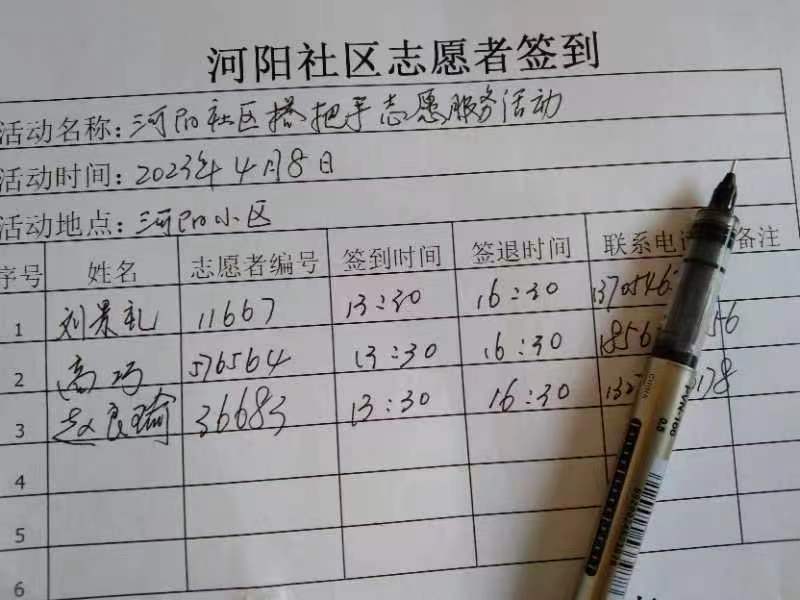 河阳社区志愿者签到
活动名称：河阳社区搭把手志愿服务活动
活动时间：2023年4月8日
活动地点：河阳小区
序号 姓名 志愿者编号 签到时间 签退时间 联系电话 备注
1 刘景礼 11667 13:30 16:30 1370546
2 高巧 576564 13:30 16:30 1856 56
3 赵良瑜 36683 13:30 16:30 132 178
4
5
6